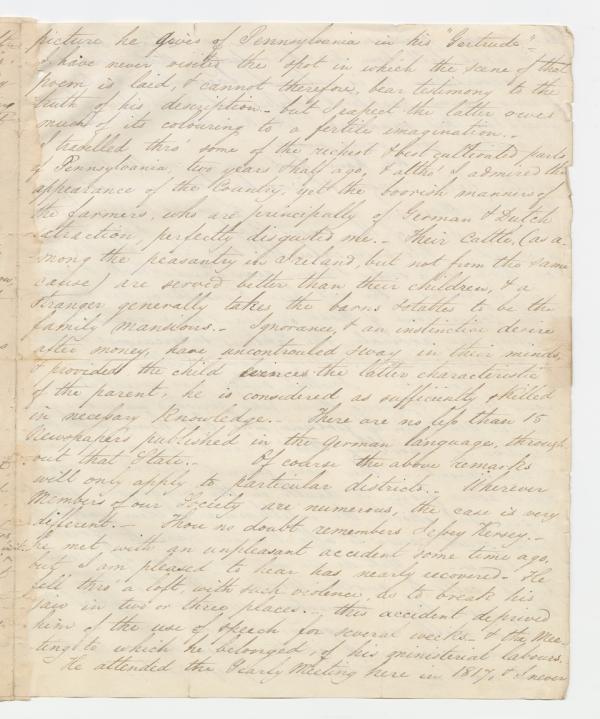 picture he gives of Pennsylvania in his "Gertrude"-
I have never visited the spot in which the scene of that
Poem is laid, & cannot therefore, bear testimony to the
truth of his description - but I expect the latter owes
much of its colouring to a fertile imagination. -
I travelled thro' some of the richest & best cultivated parts
of Pennsylvania, two years & half ago, & altho' I admired the
appearance of the Country, yet the boorish manners of
the farmers, who are principally of German & Dutch
extraction, perfectly disgusted me. - Their Cattle, (as a-
mong the peasantry in Ireland, but not from the same
cause) are served better than their children, & a
stranger generally takes the barns & stables to be the
family mansions. - Ignorance, & an instinctive desire
after money, have uncontrouled sway in their minds,
& provided the child evinces the latter characteristic
of the parent, he is considered as sufficiently skilled
in necessary knowledge. - There are no less than 15
Newspapers published in the German language, through
out that State. - Of course the above remarks
will only apply to particular districts. - Wherever
Members of our Society are numerous, the case is very
different. - Thou no doubt remembers Jessey Kersey. -
he met with an unpleasant accident some time ago,
but I am pleased to hear has nearly recovered - He
fell thro' a loft, with such violence, as to break his
jaw in two or three places. - this accident deprived
him of the use of speech for several weeks & the Mee-
ting to which he belonged, of his ministerial labours.
He attended the Yearly Meeting here in 1817, & I never